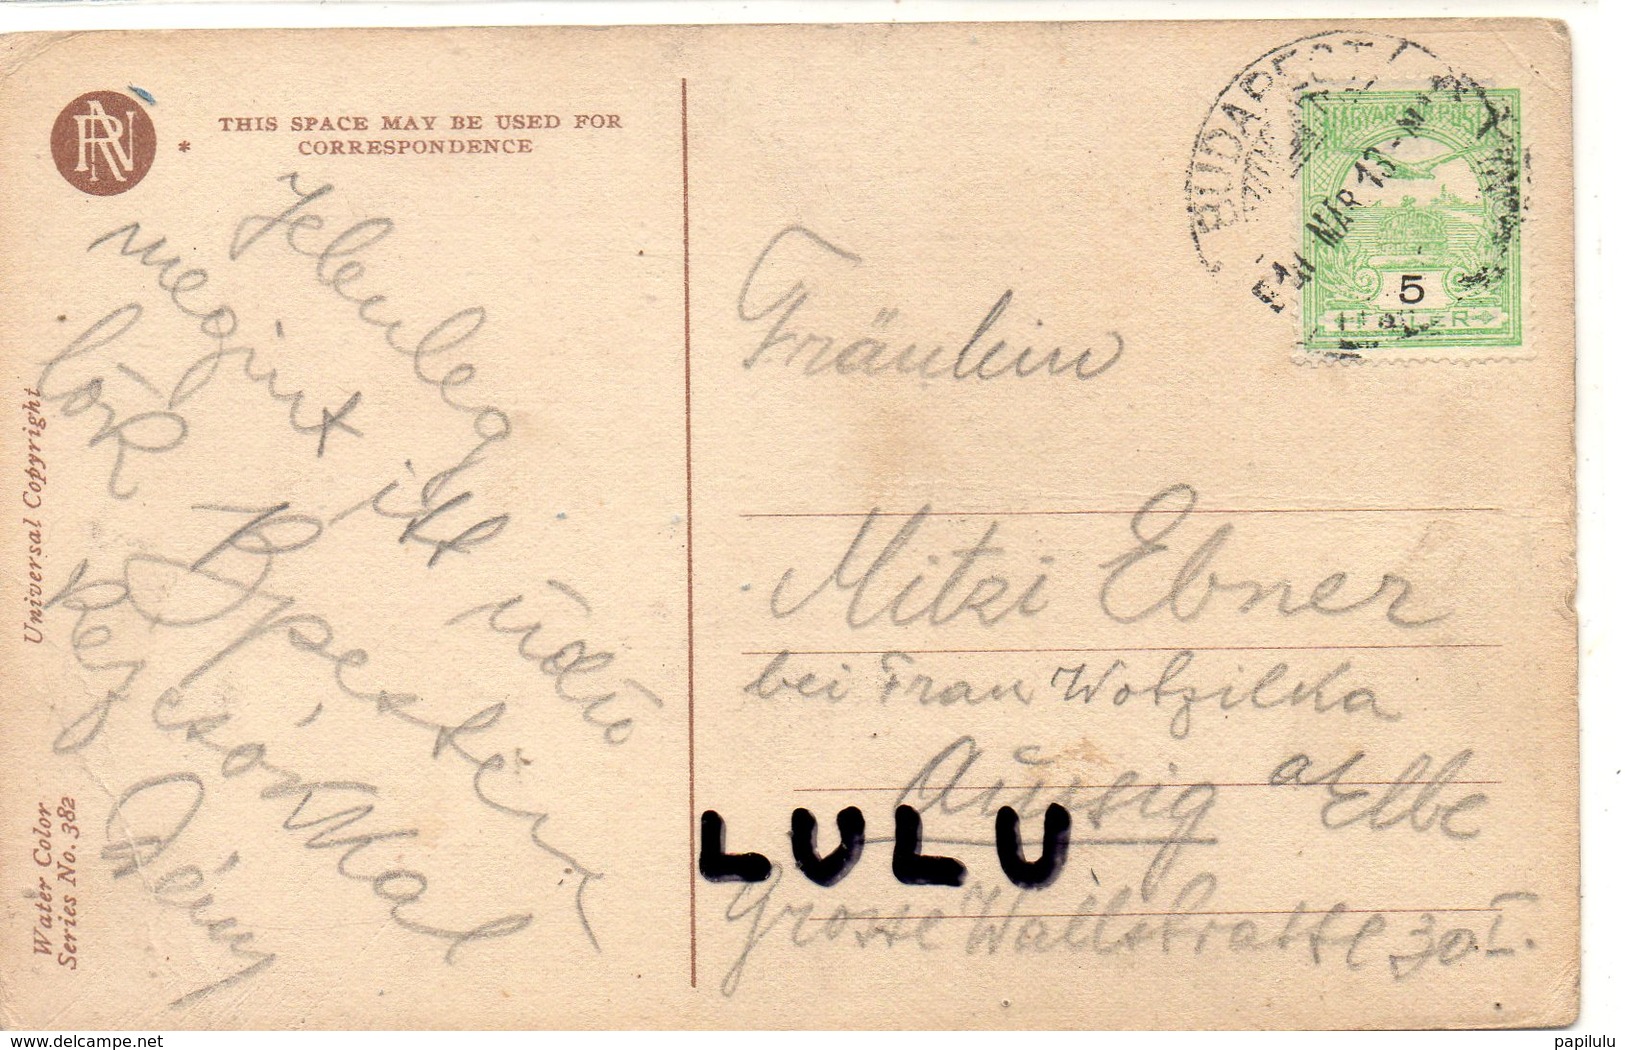 RN
* THIS SPACE MAY BE USED FOR
CORRESPONDENCE
Universal Copyright
Water Color
Series No. 382
Jelenleg
megint itt üdü
lök Bpesten
Kézcsókkal
BUDAPEST
MAR 13
MAGYAR KIR. POSTA
5
Fräulein
Mitzi Ebner
bei Frau Wotzilka
Aussig a/ Elbe
LULU
Grosse Wallstrasse 30 I.
delcampe.net
papilulu